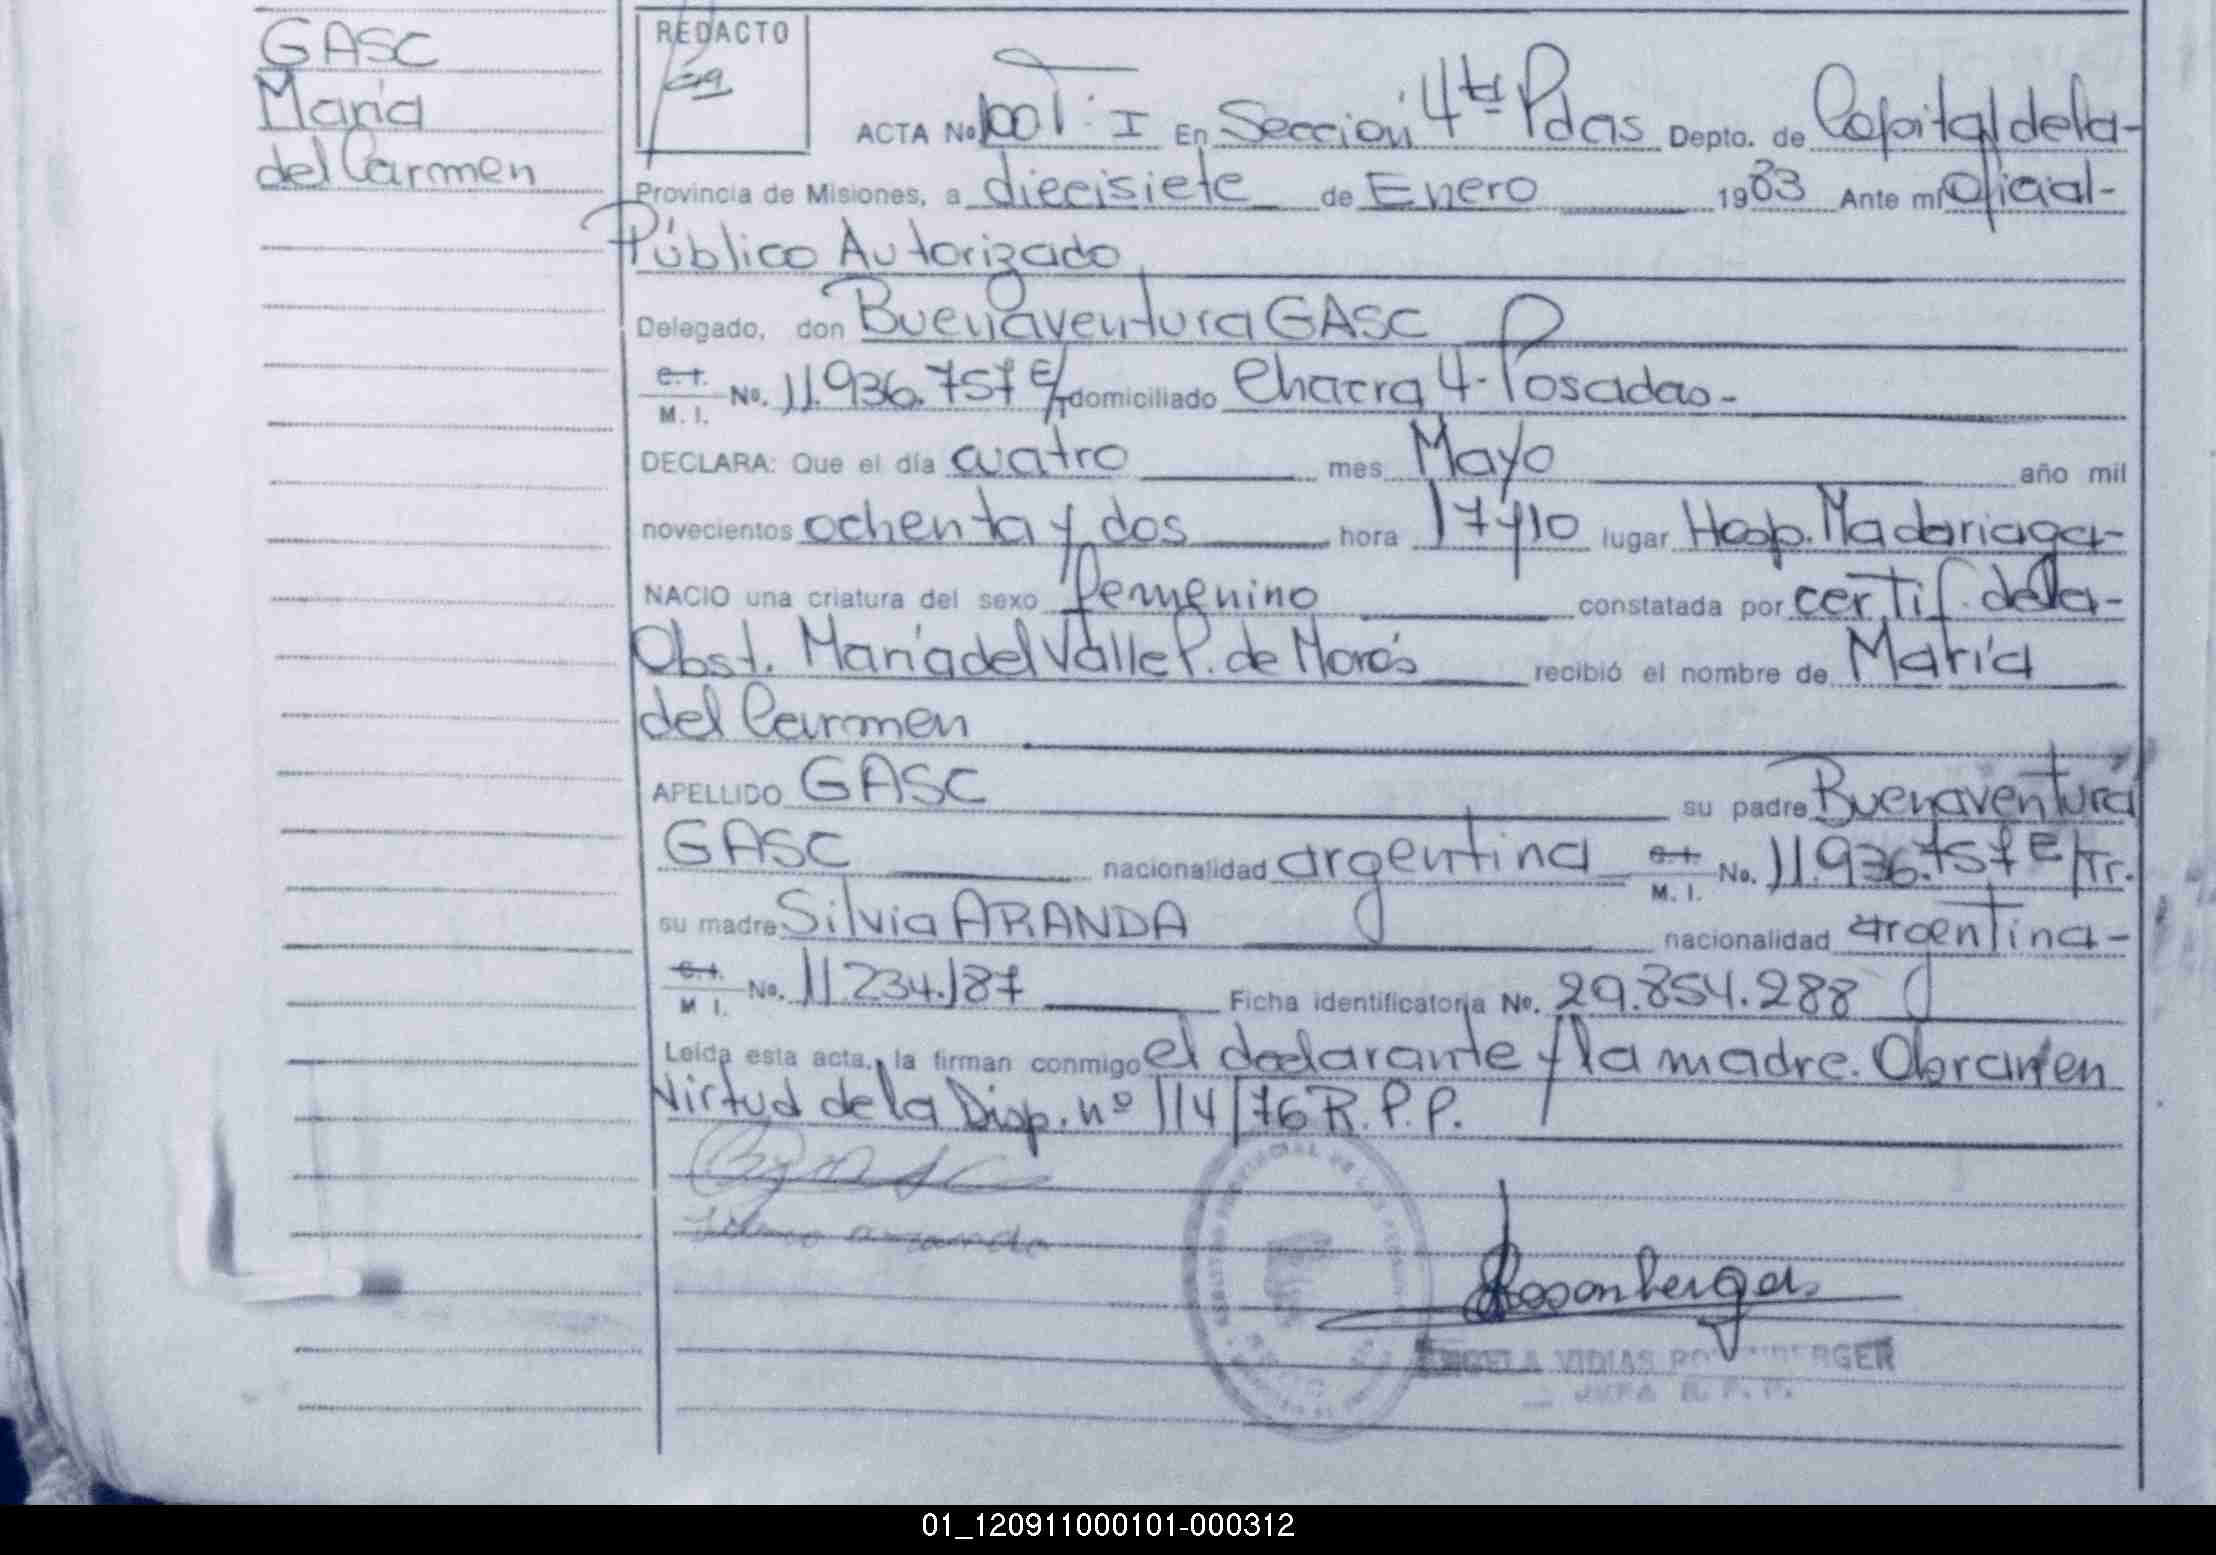 GASC
María
del Carmen
REDACTO
ACTA No. 001 · I En Sección 4ta Pdas Depto. de Capital de la-
Provincia de Misiones, a diecisiete de Enero 1983 Ante mí Oficial-
Público Autorizado
Delegado, don Buenaventura GASC
C. I.
M. I. No. 11.936.757 E/T domiciliado Chacra 4-Posadas-
DECLARA: Que el día cuatro mes Mayo año mil
novecientos ochenta y dos hora 17y10 lugar Hosp. Madariaga-
NACIO una criatura del sexo femenino constatada por certif. de la-
Obst. María del Valle P. de Morós recibió el nombre de María
del Carmen
APELLIDO GASC su padre Buenaventura
GASC nacionalidad argentina C. I. M. I. No. 11.936.757 E/Tr.
su madre Silvia ARANDA nacionalidad argentina-
C. I.
M I. No. 11.234.187 Ficha identificatoria No. 29.854.288
Leída esta acta, la firman conmigo el declarante y la madre. Obran en
virtud de la Disp. nº 114/76 R.P.P.
Rosenberger
VIDIAS ROSENBERGER
JEFA R.P.P.
01_120911000101-000312